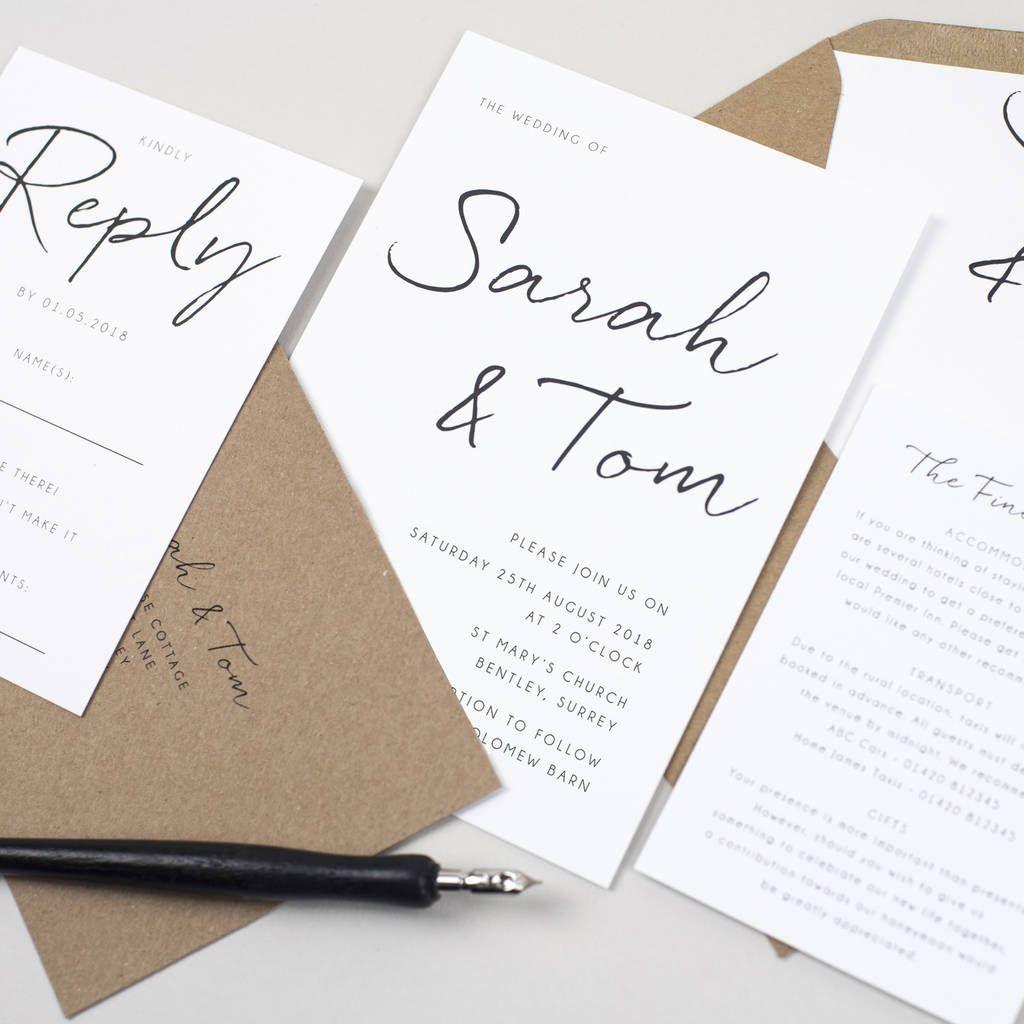 KINDLY
Reply
BY 01.05.2018
NAME(S):
THERE!
MAKE IT
& Tom
COTTAGE
LANE
THE WEDDING OF
Sarah
& Tom
PLEASE JOIN US ON
SATURDAY 25TH AUGUST 2018
AT 2 O'CLOCK
ST MARY'S CHURCH
BENTLEY, SURREY
TO FOLLOW
BARN
&
The
If you are thinking of
are several hotels close to
our wedding to get a
local Premier Inn. Please get
would like any other
TRANSPORT
Due to the rural location, taxis will
booked in advance. All guests must
the venue by midnight. We
ABC Cars - 01420 812345
Home James Taxis - 01420 812345
GIFTS
Your presence is more important than
However, should you wish to give us
something to celebrate our new life together,
a contribution towards our honeymoon would
be greatly appreciated.